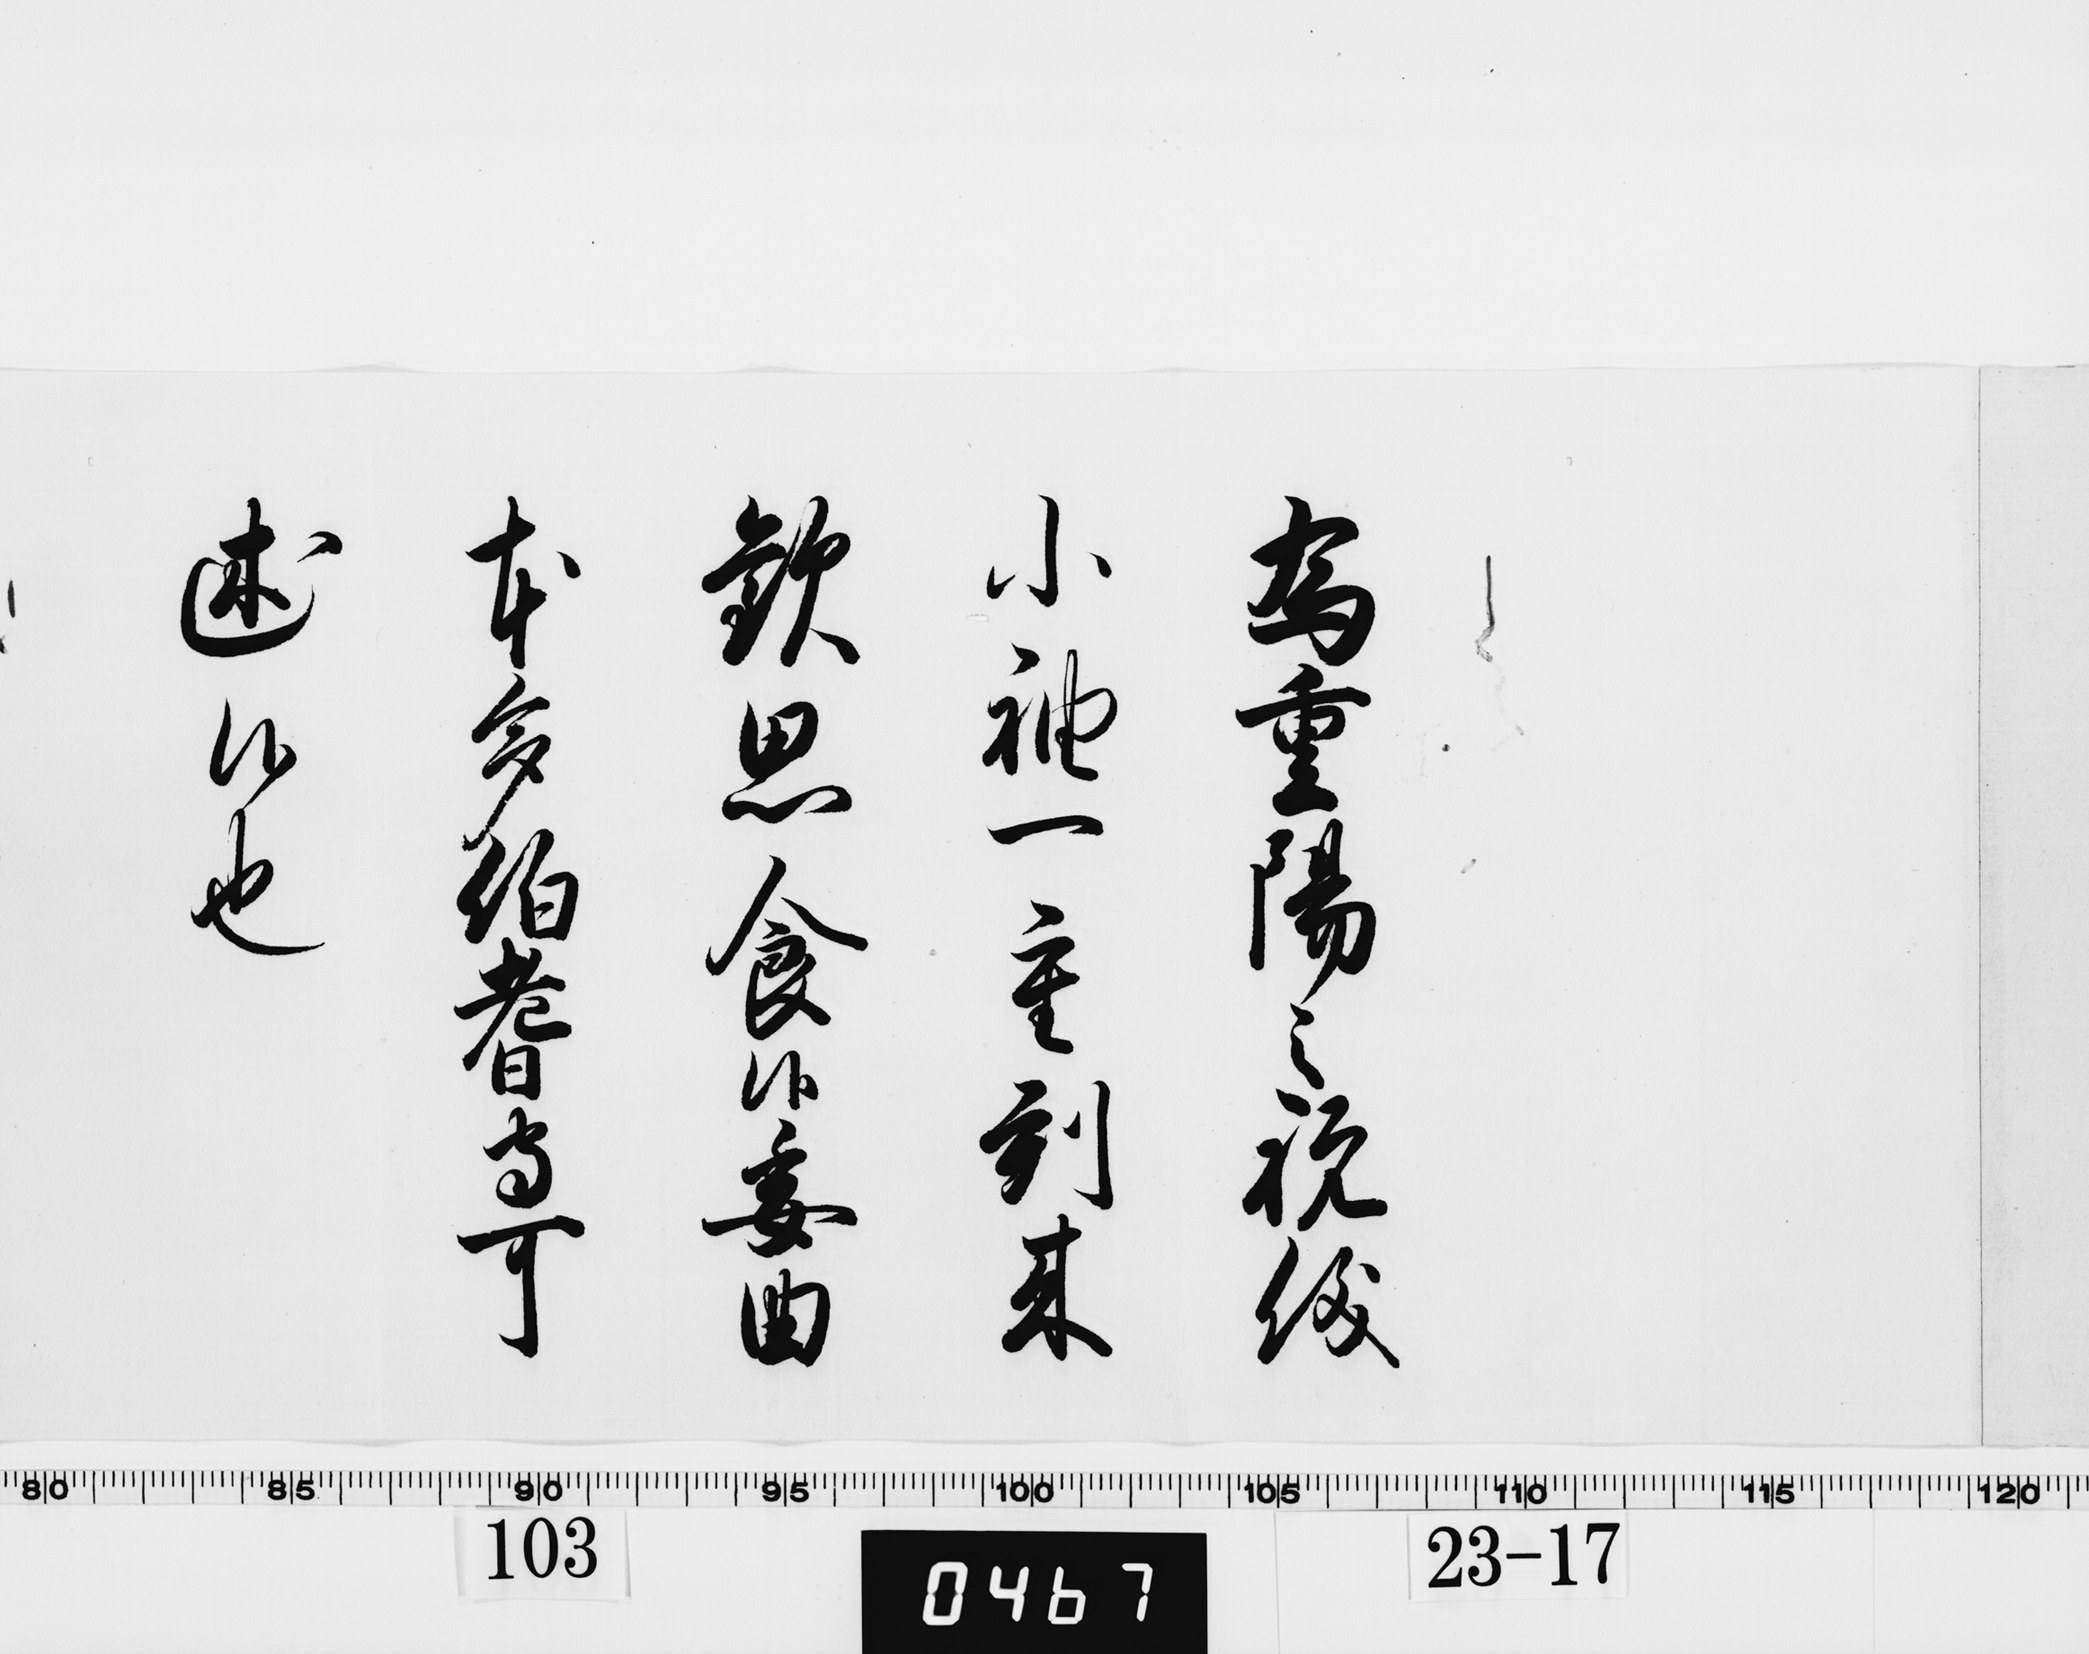 為重陽之祝儀
小袖一重到来
歓思食候委曲
本多伯耆守可
述候也
80 85 90 95 100 105 110 115 120
103
0467
23-17